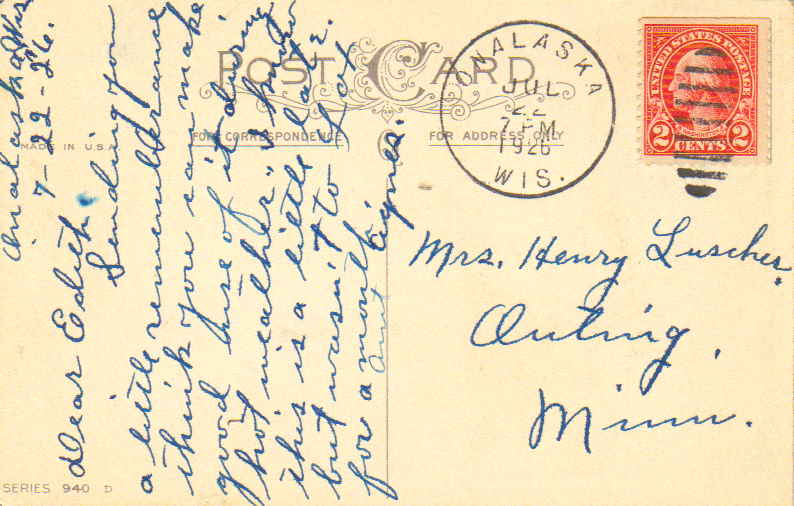 POST CARD
FOR CORRESPONDENCE
FOR ADDRESS ONLY
MADE IN U.S.A.
SERIES 940 D
ONALASKA
JUL
22
7 PM
1926
WIS.
UNITED STATES POSTAGE
2 CENTS 2
Onalaska Wis
7-22-26.
Dear Edith.
Sending you
a little remembrance
think you can make
good use of it during
hot weather, I know
this is a little late.
but wasn't to Lax
for a month.
Aunt Agnes.
Mrs. Henry Luscher.
Outing,
Minn.